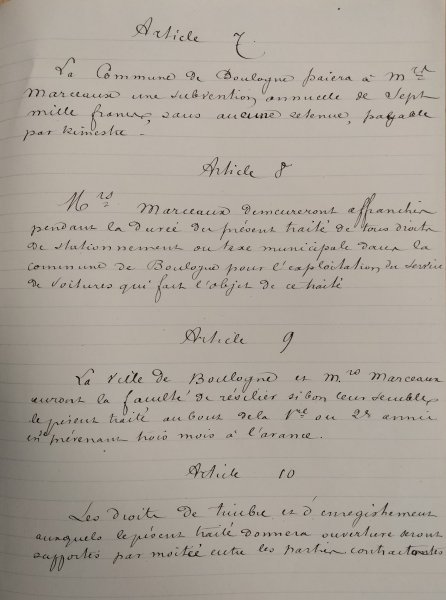 Article 7.
La Commune de Boulogne paiera à Mrs
Marceaux une subvention annuelle de Sept
mille francs, sans aucune retenue, payable
par trimestre.
Article 8
Mrs Marceaux demeureront affranchis
pendant la durée du présent traité de tous droits
de stationnement ou taxe municipale dans la
commune de Boulogne pour l'exploitation du service
de voitures qui fait l'objet de ce traité
Article 9
La ville de Boulogne et Mrs Marceaux
auront la faculté de résilier si bon leur semble
le présent traité au bout de la 1re ou 2e année
en se prévenant trois mois à l'avance.
Article 10
Les droits de timbre et d'enregistrement
auxquels le présent traité donnera ouverture seront
supportés par moitié entre les parties contractantes